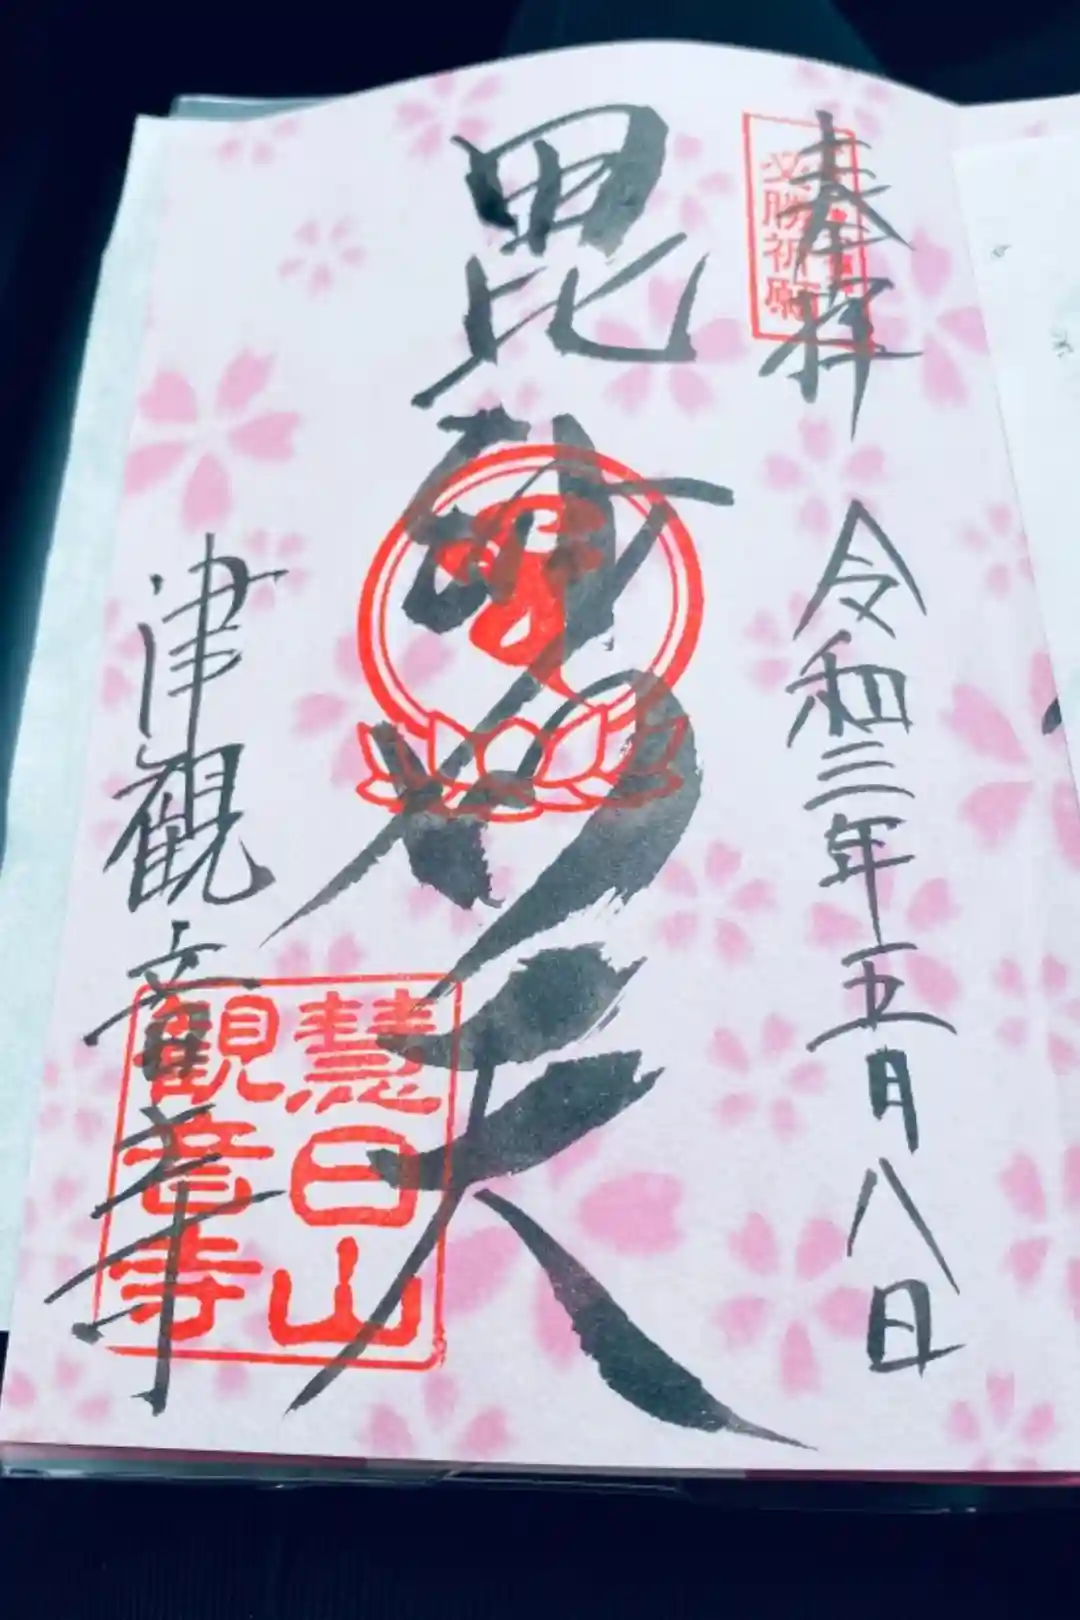 奉拝
必勝祈願
令和三年五月八日
毘沙門天
津観音寺
慧日山
観音寺